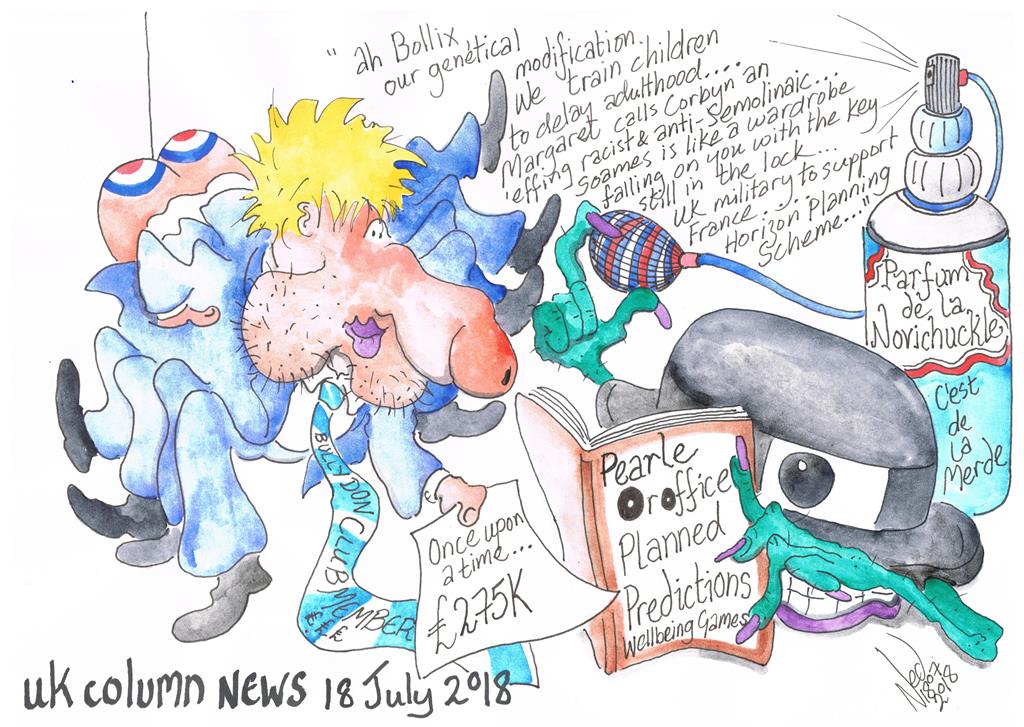 "ah Bollix
our genetical
modification.
We train children
to delay adulthood....
Margaret calls Corbyn an
'effing racist & anti-Semolinaic...
Soames is like a wardrobe
falling on you with the key
still in the lock...
UK military to support
France...
Horizon Planning
Scheme..."
Parfum
de la
Novichuckle
C'est
de
La
Merde
BULLDON CLUB MEMBER
££££
Once upon
a time...
£275K
Pearle
Oroffice
Planned
Predictions
Wellbeing Games
UK COLUMN NEWS 18 July 2018
2018